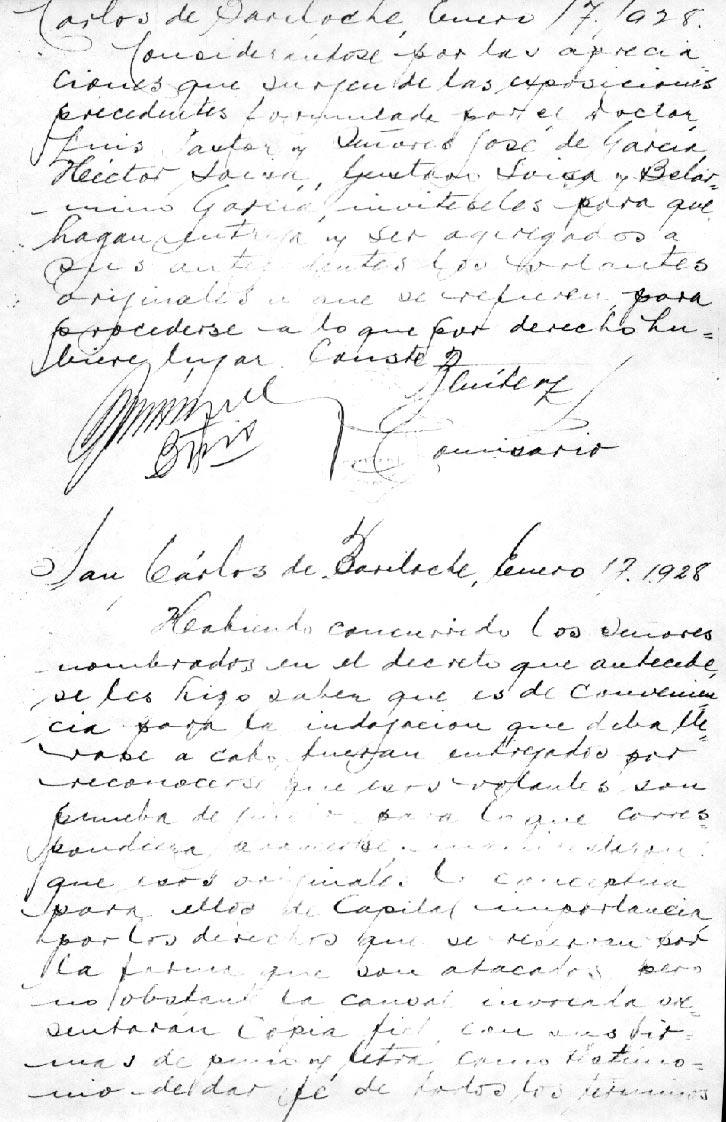 Carlos de Bariloche, Enero 17, 1928.
Considerándose por las aprecia-
ciones que surgen de las exposiciones
precedentes formulada por el Doctor
Luis Pastor y Señores José de García,
Héctor Soisa, Gustavo Soisa y Belar-
mino García, inviteseles para que
hagan entrega y ser agregados a
sus antecedentes los volantes
originales a que se refieren, para
procederse a lo que por derecho hu-
biere lugar. Conste
Comisario
San Cárlos de Bariloche, Enero 17. 1928
Habiendo concurrido los Señores
nombrados en el decreto que antecede,
se les hizo saber que es de convenien-
cia para la indagacion que deba lle-
varse a cabo, fueran entregados por
reconocerse que esos volantes son
prueba de juicio para lo que corres-
pondiera
que esos originales conceptua
para ellos de Capital importancia
por los derechos que se reservan por
la forma que son atacados, pero
no obstante la causal invocada pre-
sentarán Copia fiel, con sus fir-
mas de puño y letra, como testimo-
nio del dar fé de todos los términos